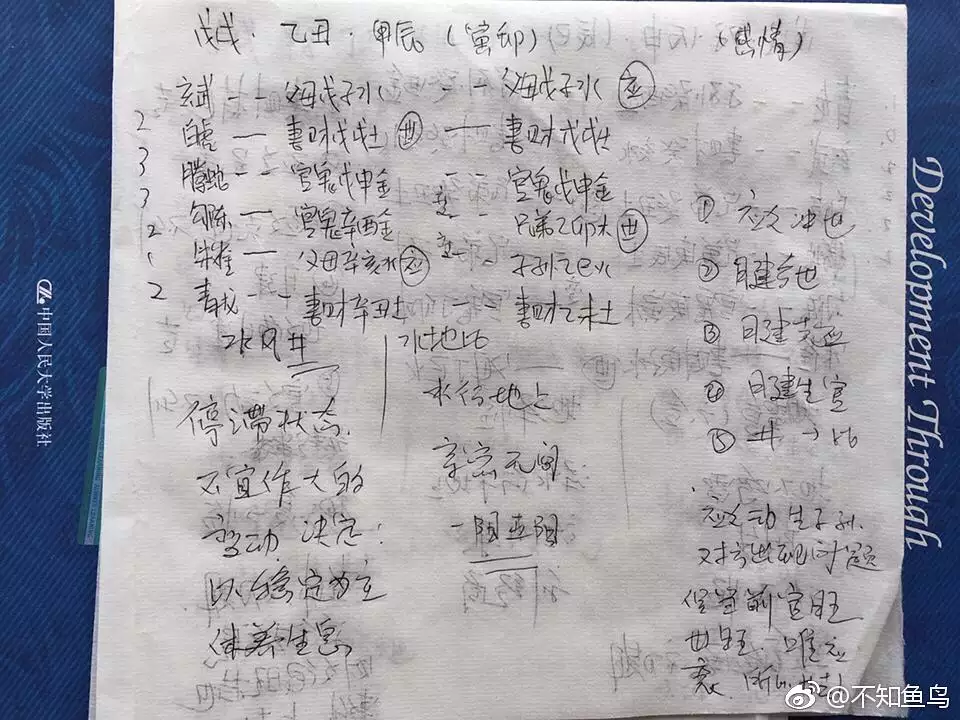 戊戌·乙丑·甲辰(寅卯) (感情)
玄武 -- 父母戊子水 -- 父母戊子水 应
2 白虎 — 妻财戊戌土 世 — 妻财戊戌土
3 腾蛇 -- 官鬼戊申金 -- 官鬼戊申金
3 勾陈 — 官鬼辛酉金 -- 兄弟乙卯木 世
2 朱雀 — 父母辛亥水 应 -- 子孙乙巳火
2 青龙 -- 妻财辛丑土 -- 妻财乙未土
水风井
水地比
停滞状态.
不宜作大的
变动 决定:
以稳定为主
休养生息
水行地上
亲密无间
一阳五阴
① 应爻冲世
② 日建合世
③ 日建克应
④ 日建生官
⑤ 井→比
应爻动生子孙.
对方出现问题
官旺
世旺. 唯应
衰.
中国人民大学出版社
Development Through
@不知鱼鸟